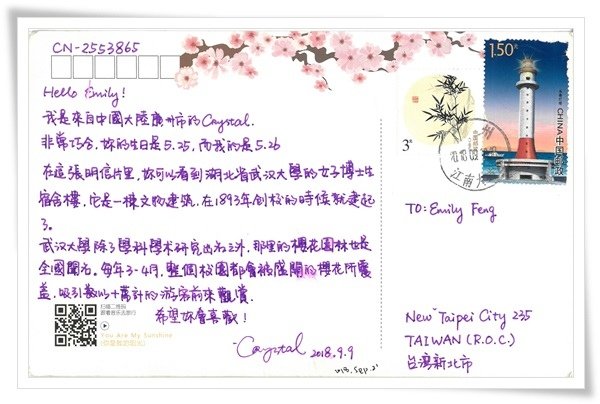 CN-2553865
Hello Emily!
我是來自中國大陸廣州市的Crystal.
非常巧合, 妳的生日是5.25, 而我的是5.26
在這張明信片里, 妳可以看到湖北省武汉大學的女子博士生
宿舍樓, 它是一棟文物建筑, 在1893年創校的時候就建起
了.
武汉大學除了學科學術研究出名之外, 那里的櫻花園林也是
全國聞名. 每年3-4月, 整個校園都會被盛開的櫻花所覆
蓋, 吸引數以十萬計的游客前來觀賞.
希望妳會喜歡!
Crystal 2018.9.9
扫描二维码
跟着音乐去旅行
You Are My Sunshine
(你是我的阳光)
3元
1.50元
CHINA 中国邮政
州
江南大
TO: Emily Feng
New Taipei City 235
TAIWAN (R.O.C.)
台灣新北市
√18. Sep. 21